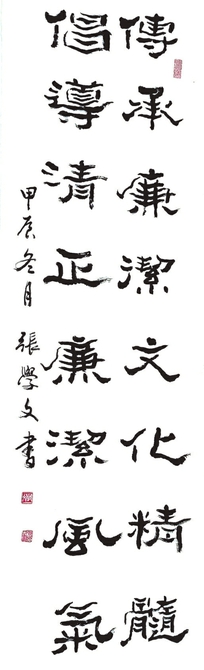 傳承廉潔文化精髓
倡導清正廉潔風氣
甲辰冬月 張學文書